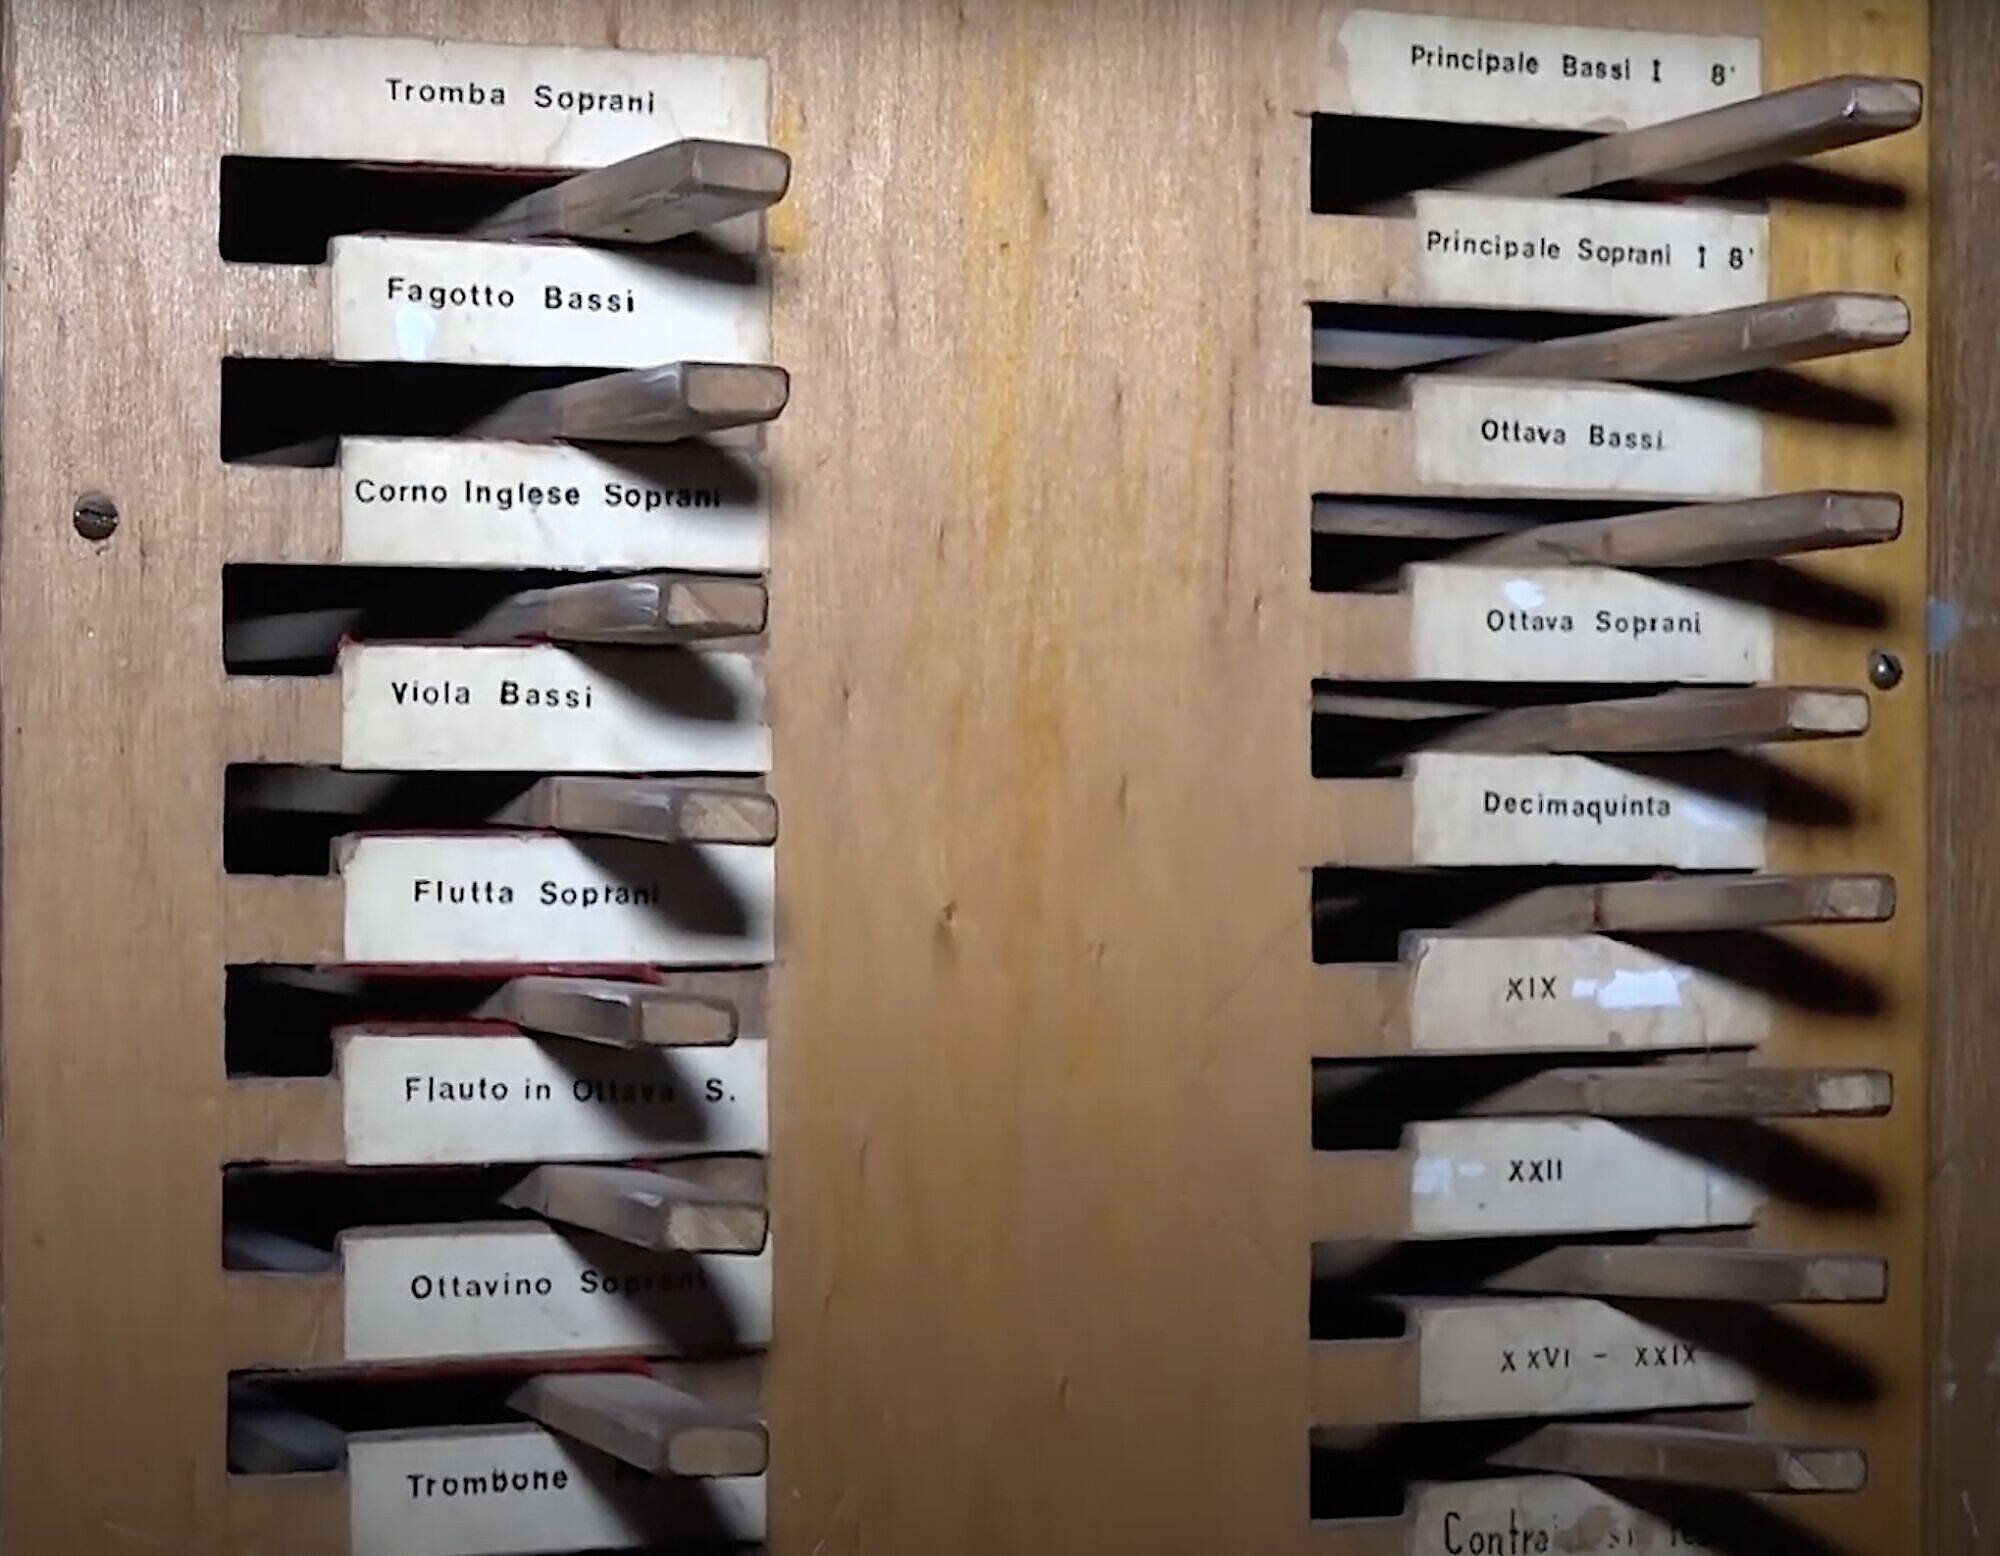 Tromba Soprani
Fagotto Bassi
Corno Inglese Soprani
Viola Bassi
Flutta Soprani
Flauto in Ottava S.
Ottavino Soprani
Trombone
Principale Bassi I 8'
Principale Soprani I 8'
Ottava Bassi
Ottava Soprani
Decimaquinta
XIX
XXII
XXVI - XXIX